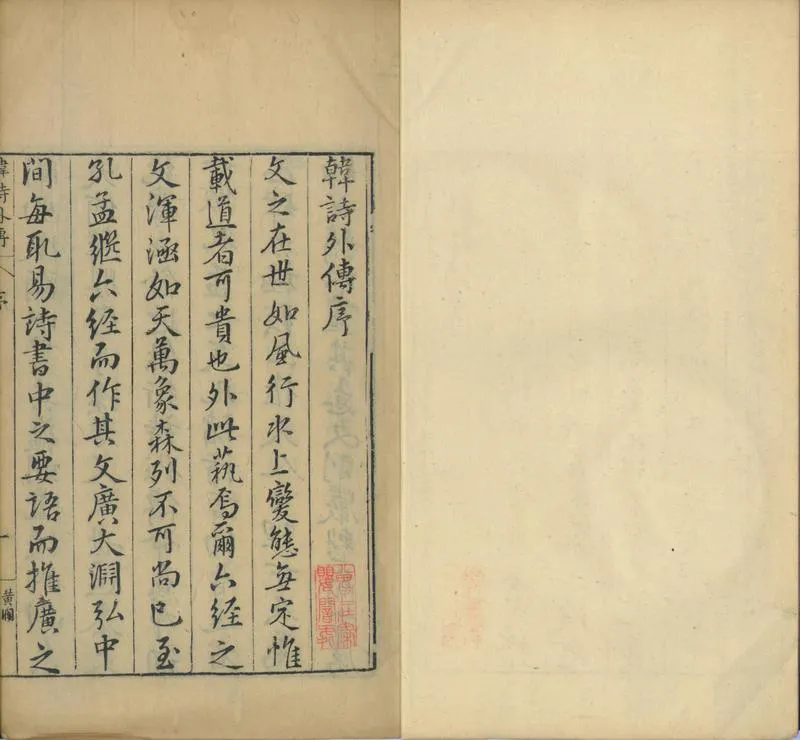 韓詩外傳序
文之在世如風行水上變態每定惟
載道者可貴也外此蓺焉爾六經之
文渾涵如天萬象森列不可尚已至
孔孟繼六経而作其文廣大淵弘中
間每取易詩書中之要語而推廣之
韓詩外傳
序
一
黄